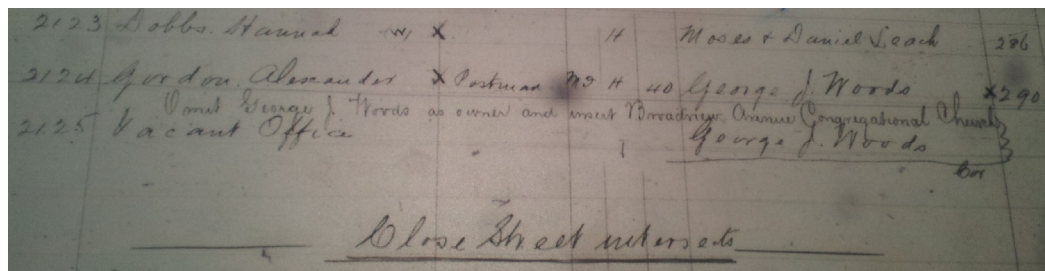 2123 Dobbs. Hannah W X H Moses & Daniel Leach 286
2124 Gordon. Alexander X Postman MS H 40 George J. Woods X290
Omit George J. Woods as owner and insert Broadview Avenue Congregational Church
2125 Vacant Office 1 George J. Woods
Cor
Close Street intersects